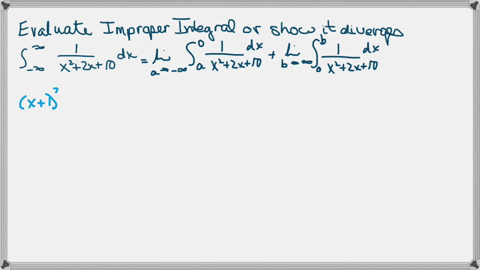 Evaluate Improper Integral or show it diverges
∫_{-∞}^{∞} 1/(x²+2x+10) dx = lim_{a→-∞} ∫_a^0 1/(x²+2x+10) dx + lim_{b→∞} ∫_0^b 1/(x²+2x+10) dx
(x+1)²